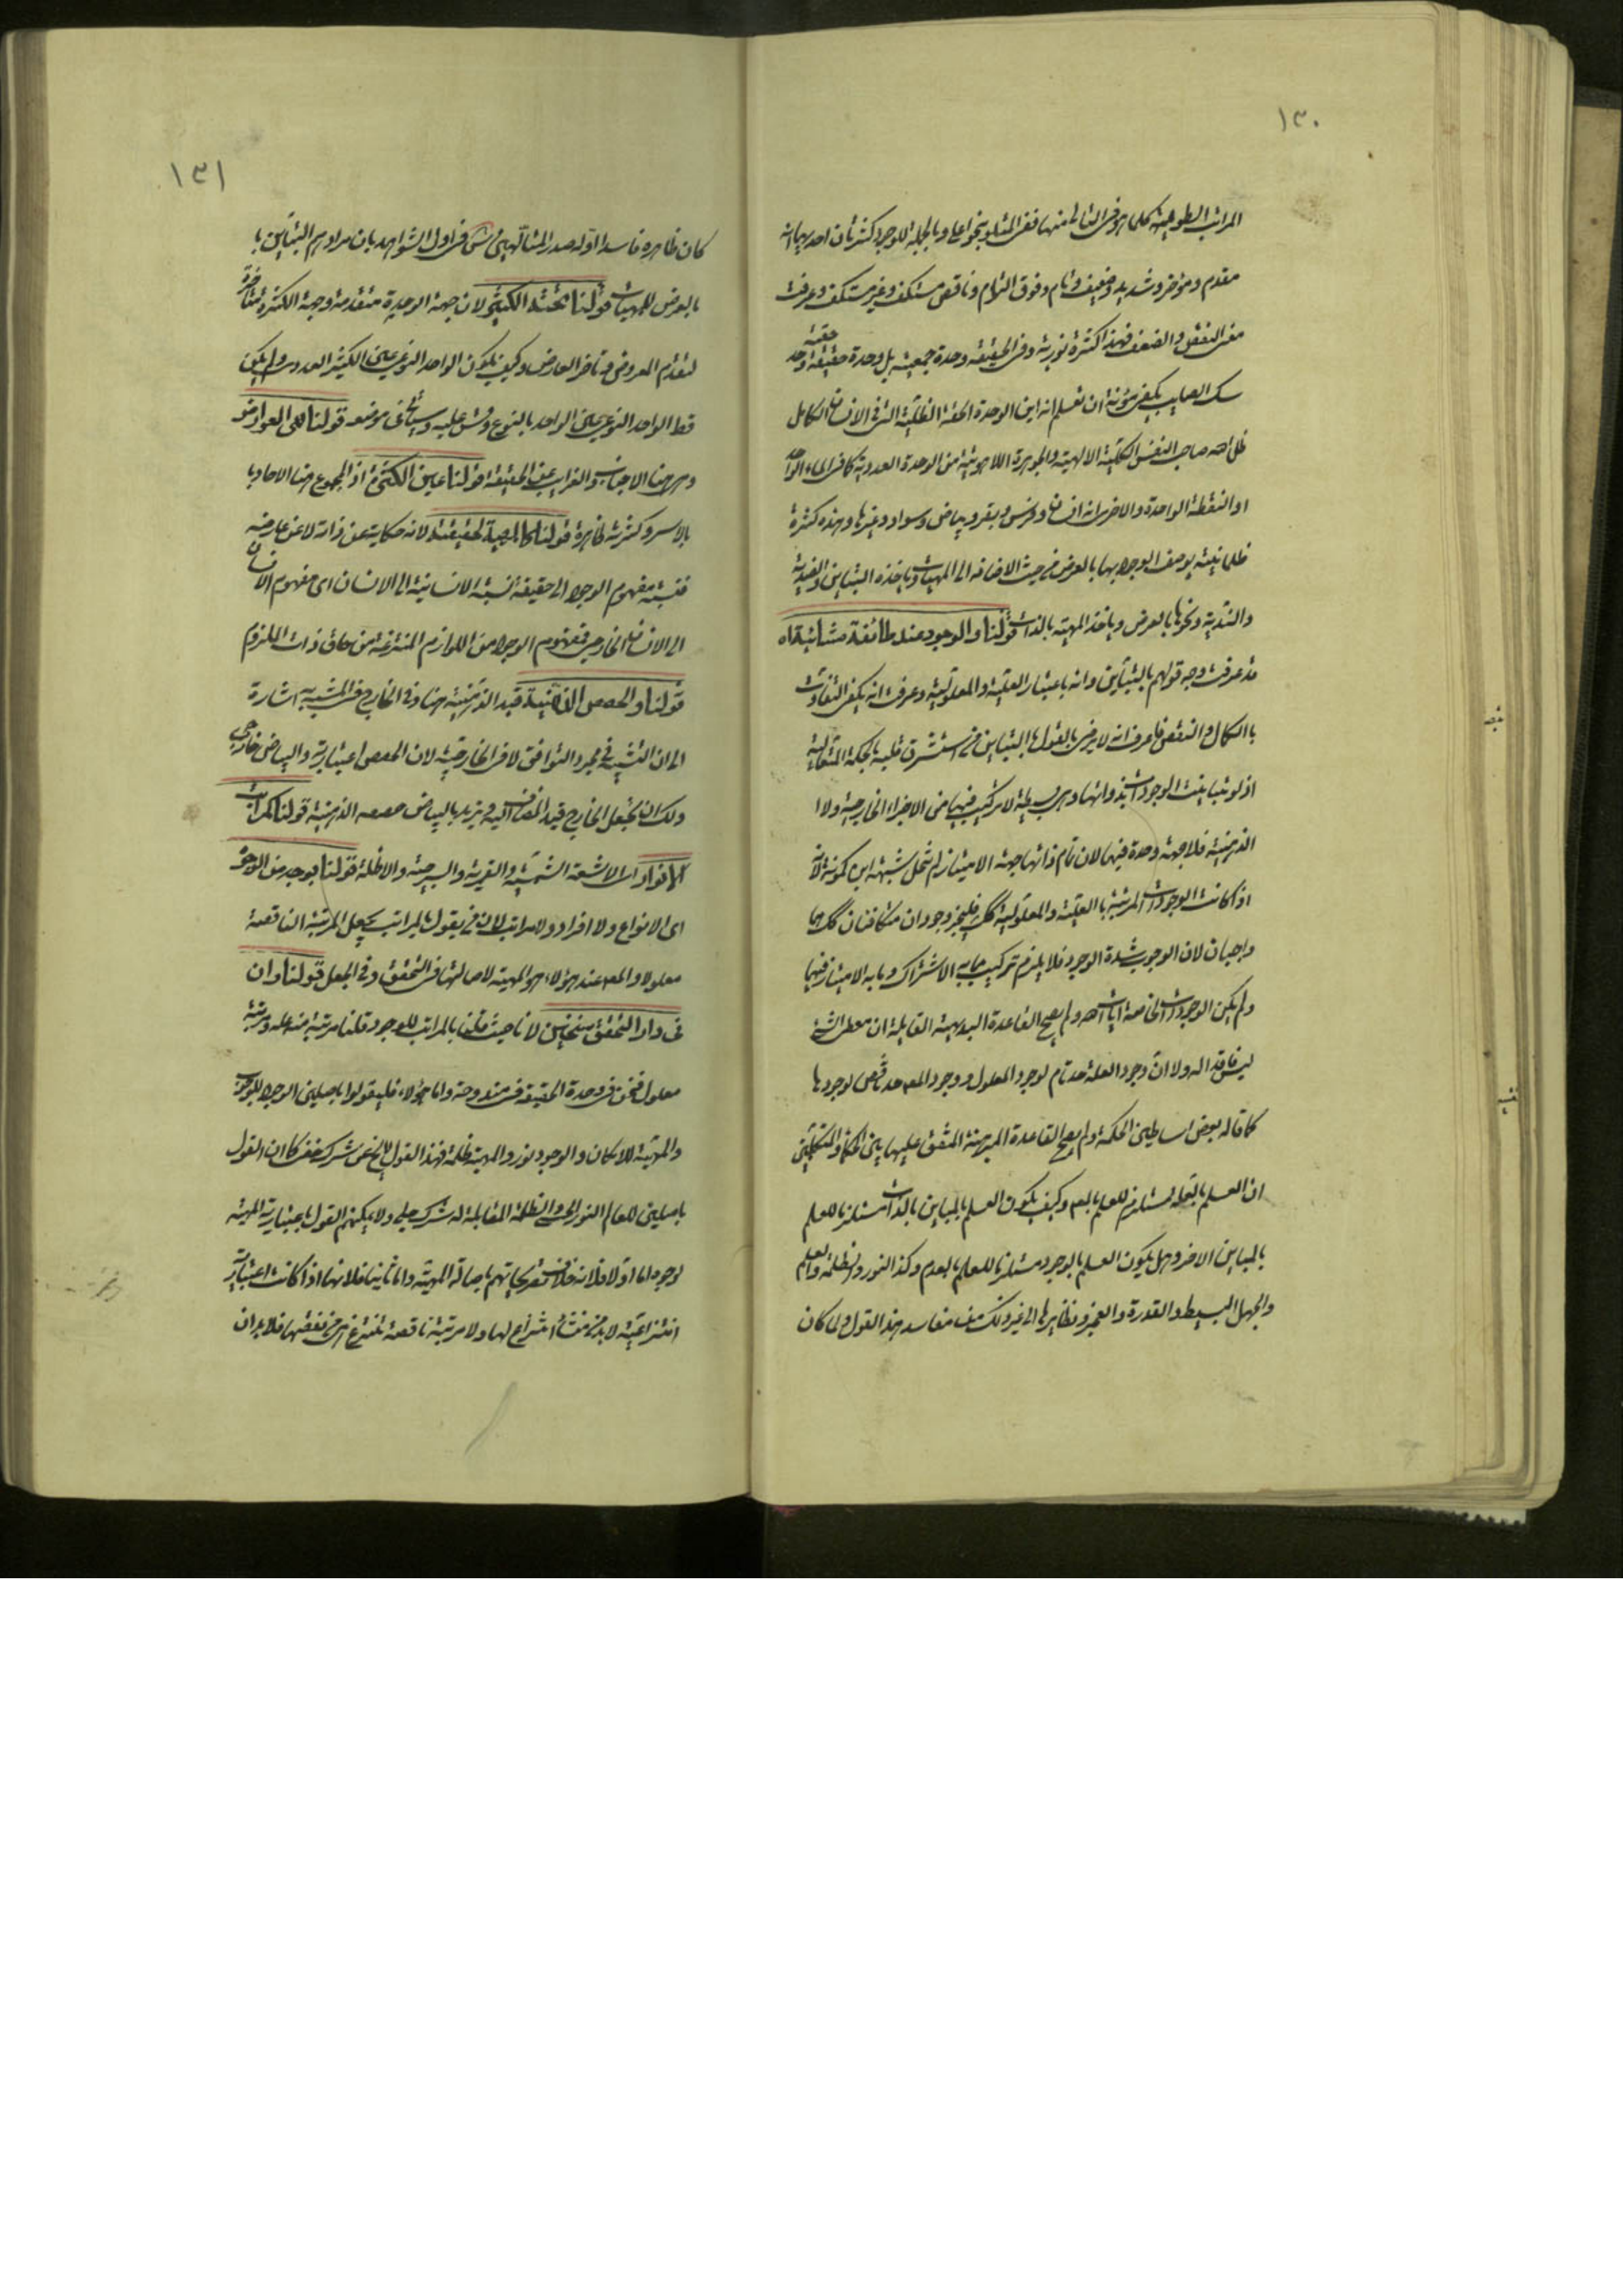 ١٣٠
المراتب الطولية كلما هو فى التالى منها ففى المتلو بنحو اعلى و بالجملة للوجود كثرتان احديهما انه
مقدم و مؤخر و شديد و ضعيف و تام و فوق التمام و ناقص مستكف و غير مستكف و عرفت
معنى النقص و الضعف فهذه الكثرة نورية و فى الحقيقة وحدة جمعية بل وحدة حقيقة واحدة
يكفى مؤنة ان تعلم انه اين الوحدة الحقة الظلية التى فى الانسان الكامل
ظل الله صاحب النفس الكلية الالهية و الجوهرة اللاهوتية من الوحدة العددية كما فى الماء الواحد
او النقطة الواحدة و الاخرى انه انسان و فرس و بقر و بياض و سواد و غيرها و هذه كثرة
ظلمانية يوصف الوجود بها بالعرض من حيث الاضافة الى المهيات و ياخذه التباين و الضدية
و الندية و نحوها بالعرض و ياخذ المهية بالذات قولنا و الوجود عند طائفة مشائية اه
قد عرفت وجه قولهم بالتباين و انه باعتبار العلية و المعلولية و عرفت انه يكفى التفاوت
بالكمال و النقص فاعرف انه لا يرضى بالقول بالتباين من استشرق قلبه بالحكمة المتعالية
اذ لو تباينت الوجودات بذواتها و هى بسيطة لا تركيب فيها من الاجزاء الخارجية و لا
الذهنية فلا جهة وحدة فيها لان تمام ذاتها جهة الامتياز لم تنحل شبهة ابن كمونة لانه
اذا كانت الوجودات المرتبة بالعلية و المعلولية كك فليجز وجودان متكافئان كك هما
واجبان لان الوجوب شدة الوجود فلا يلزم تركيب مما به الاشتراك و ما به الامتياز فيهما
و لم يكن الوجودات الخاصة ايات الله و لم يصح القاعدة البديهية القايلة ان معطى الشئ
ليس فاقدا له و لا ان وجود العلة حد تام لوجود المعلول و وجود المعه حد ناقص لوجودها
كما قاله بعض اساطين الحكمة و لم يصح القاعدة المبرهنة المتفق عليها بين الحكماء و المتكلمين
ان العلم بالعلة مستلزم للعلم بالمعه و كيف يكون العلم بالمباين بالذات مستلزما للعلم
بالمباين الاخر و هل يكون العلم بالوجود مستلزما للعلم بالعدم و كذا النور و الظلمة و العلم
و الجهل البسيط و القدرة و العجز و نظايرها الى غير ذلك من مفاسد هذا القول و لما كان
١٣١
كان ظاهره فاسدا اوله صدر المتالهين س فى اول الشواهد بان مرادهم التباين با
بالعرض للمهيات قولنا بحتة الكثير لان جهة الوحدة متقدمة و جهة الكثرة متاخرة
لتقدم المعروض و تاخر العارض و كيف يكون الواحد النوعى عين الكثير العددى و لم يكن
قط الواحد النوعى عين الواحد بالنوع و قس عليه و سياتى فى موضعه قولنا الى العوارض
و هى هنا الاجانب و الغرايب عن الحقيقة قولنا عين الكثرة اذ المجموع هنا الاحاد با
بالاسر و كثرته ظاهرة قولنا كالحصة الحقيقية لانه حكاية عن ذاته لا عن عارضه
فنسبة مفهوم الوجود الى حقيقة نسبة الانسانية الى الانسان اى مفهوم الانسان
الى الانسان الخارجى فمفهوم الوجود من اللوازم المنتزعة من حاق ذات الملزوم
قولنا و الحصص الذهنية قيد الذهنية هنا و فى الخارج فى المشبه به اشارة
الى ان التشبيه فى مجرد التوافق لا فى الخارجية لان الحصص اعتبارية و البياض خارجى
و لك ان تجعل الخارج قيد المضاف اليه و تريد بالبياض حصصه الذهنية قولنا كمراتب
الانوار اى الاشعة الشمسية و القمرية و السرجية و الاظلة قولنا بوجه من الوجوه
اى لا انواع و لا افراد و لا مراتب لان من يقول بالمراتب يجعل المرتبة الناقصة
معلولا و المعه عند هؤلاء هو المهية لاصالتها فى التحقق و فى الجعل قولنا و ان
فى دار التحقق سنخين لانا حيث قلنا بالمراتب للوجود قلنا مرتبة منه علة و مرتبة
معلول فنحن فى وحدة الحقيقة فى مندوحة و اما هؤلاء فليقولوا باصلين الوجود للوجوب
و المهية للامكان و الوجود نور و المهية ظلمة فهذا القول لا يخ عن شرك خفى كما ان القول
باصلين للعالم النور الحسى و الظلمة المقابلة له شرك جلى و لا يمكنهم القول باعتبارية المهية
لوجوه اما اولا فلانه خلاف تصريحاتهم باصالة المهية و اما ثانيا فلانها اذا كانت اعتبارية
انتزاعية لا بد من منشأ انتزاع لها و لا مرتبة ناقصة تنتزع هى من نقصها فلا بد ان